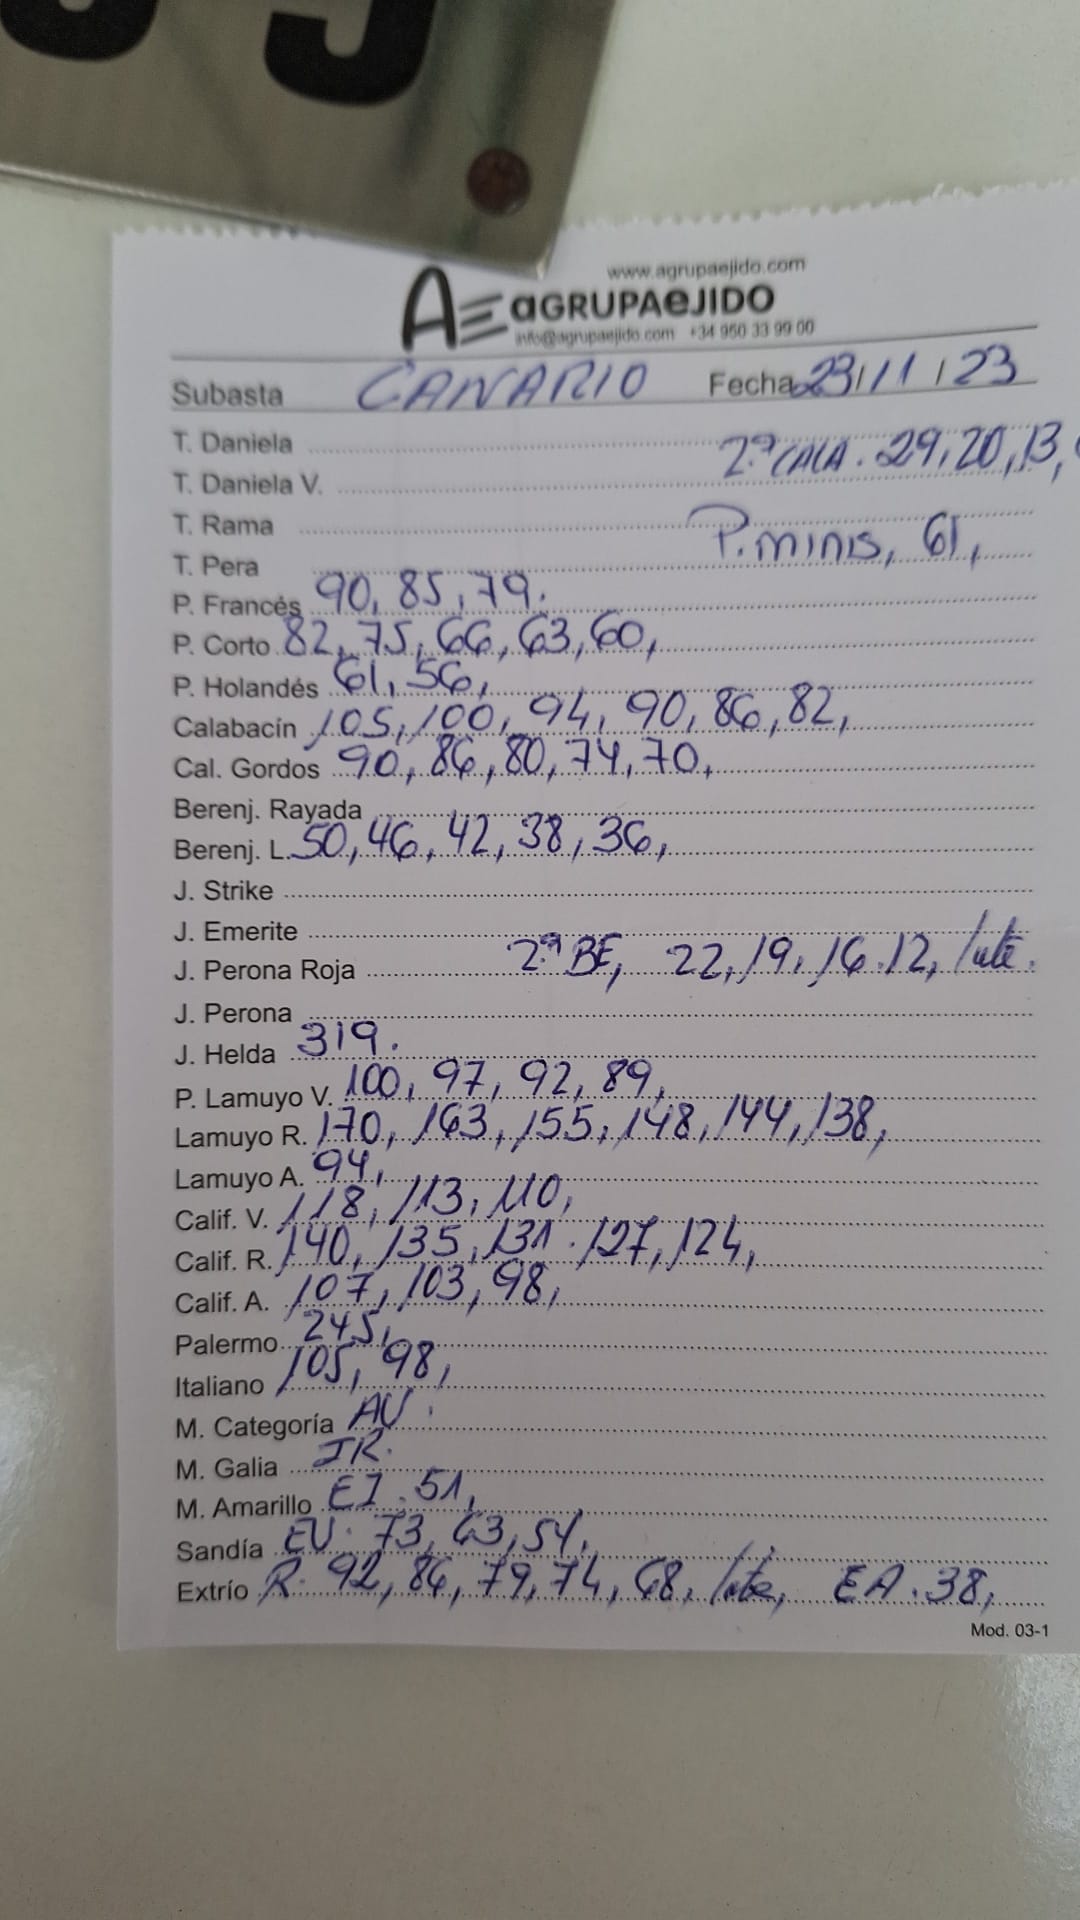 www.agrupaejido.com
AE aGRUPAeJIDO
info@agrupaejido.com +34 950 33 99 00
Subasta CANARIO Fecha 23/11/23
T. Daniela
2.ª CALA. 29, 20, 13,
T. Daniela V.
T. Rama
P. minis, 61,
T. Pera
P. Francés 90, 85, 79.
P. Corto 82, 75, 66, 63, 60,
P. Holandés 61, 56,
Calabacín 105, 100, 94, 90, 86, 82,
Cal. Gordos 90, 86, 80, 74, 70,
Berenj. Rayada
Berenj. L. 50, 46, 42, 38, 36,
J. Strike
J. Emerite
J. Perona Roja 2.ª BE, 22, 19, 16. 12,
J. Perona
J. Helda 319.
P. Lamuyo V. 100, 97, 92, 89,
Lamuyo R. 170, 163, 155, 148, 144, 138,
Lamuyo A. 94,
Calif. V. 118, 113, 110,
Calif. R. 140, 135, 131. 127, 124,
Calif. A. 107, 103, 98,
Palermo 245,
Italiano 105, 98,
M. Categoría AV.
M. Galia JR.
M. Amarillo EI. 51,
Sandía EV. 73, 63, 54,
Extrío R. 92, 86, 79, 74, 68, EA. 38,
Mod. 03-1